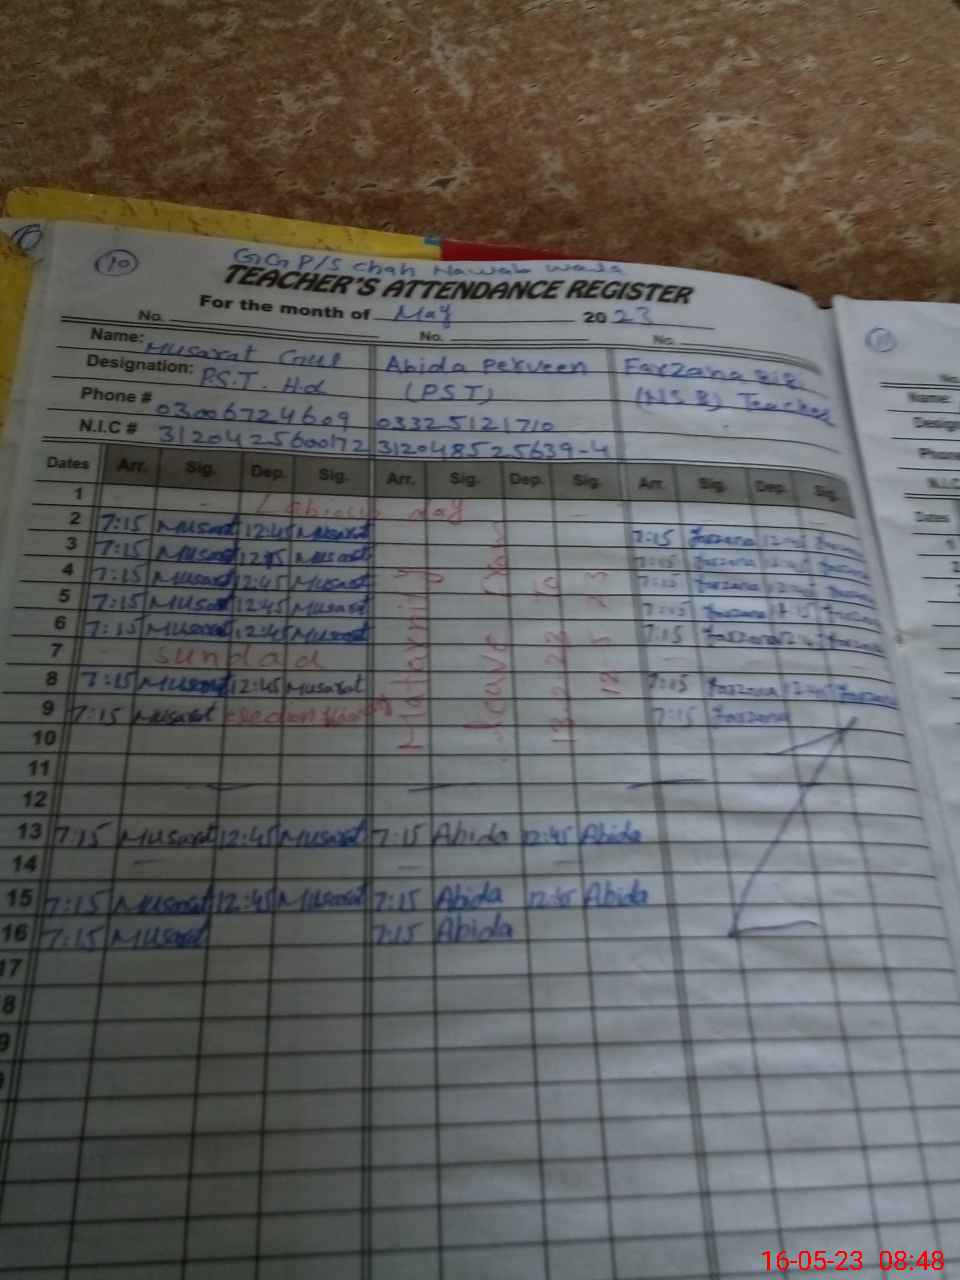 10
G.G P/S Chah Nawab Wala
TEACHER'S ATTENDANCE REGISTER
For the month of May 2023
No. No. No.
Name: Musarat Abida Perveen Farzana Bibi
Designation: P.S.T. H.d (PST) (NSB) Teacher
Phone # 03006724609 03325121710
N.I.C # 3120425600172 312048525639-4
Dates Arr. Sig. Dep. Sig. Arr. Sig. Dep. Sig. Arr. Sig. Dep. Sig.
1 day
2 7:15 Musarat 12:45 Musarat 7:15 Farzana 12:45 Farzana
3 7:15 Musarat 12:45 Musarat 7:15 Farzana 12:45 Farzana
4 7:15 Musarat 12:45 Musarat 7:15 Farzana 12:45 Farzana
5 7:15 Musarat 12:45 Musarat 7:15 Farzana Farzana
6 7:15 Musarat 12:45 Musarat 7:15 Farzana 12:45 Farzana
7 sundad
8 7:15 Musarat 12:45 Musarat 7:15 Farzana 12:45 Farzana
9 7:15 Musarat 7:15 Farzana
Matarnity
Leave
10
11
12
13 7:15 Musarat 12:45 Musarat 7:15 Abida 12:45 Abida
14
15 7:15 Musarat 12:45 Musarat 7:15 Abida 12:45 Abida
16 7:15 Musarat 7:15 Abida
17
8
9
11
Name:
Phone
Dates
16-05-23 08:48